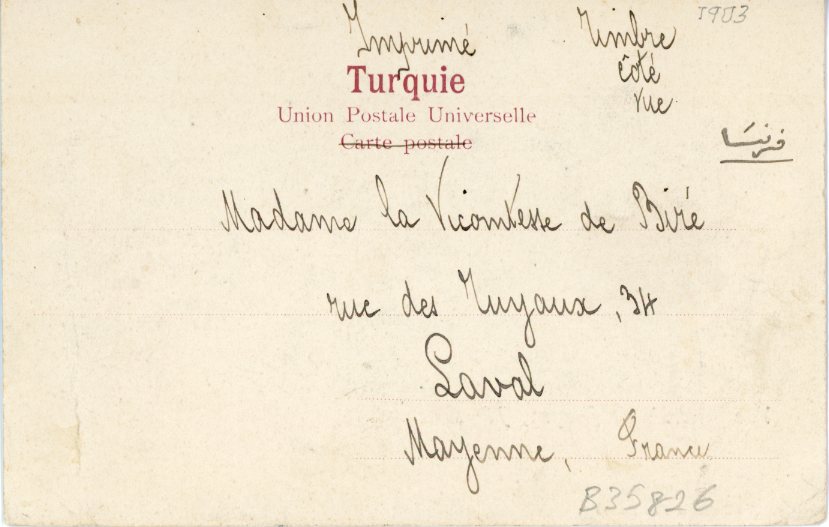 1903
Imprimé
Timbre
côté
vue
Turquie
Union Postale Universelle
Carte postale
فرنسا
Madame la Vicomtesse de Biré
rue des Tuyaux, 34
Laval
Mayenne, France
B35826